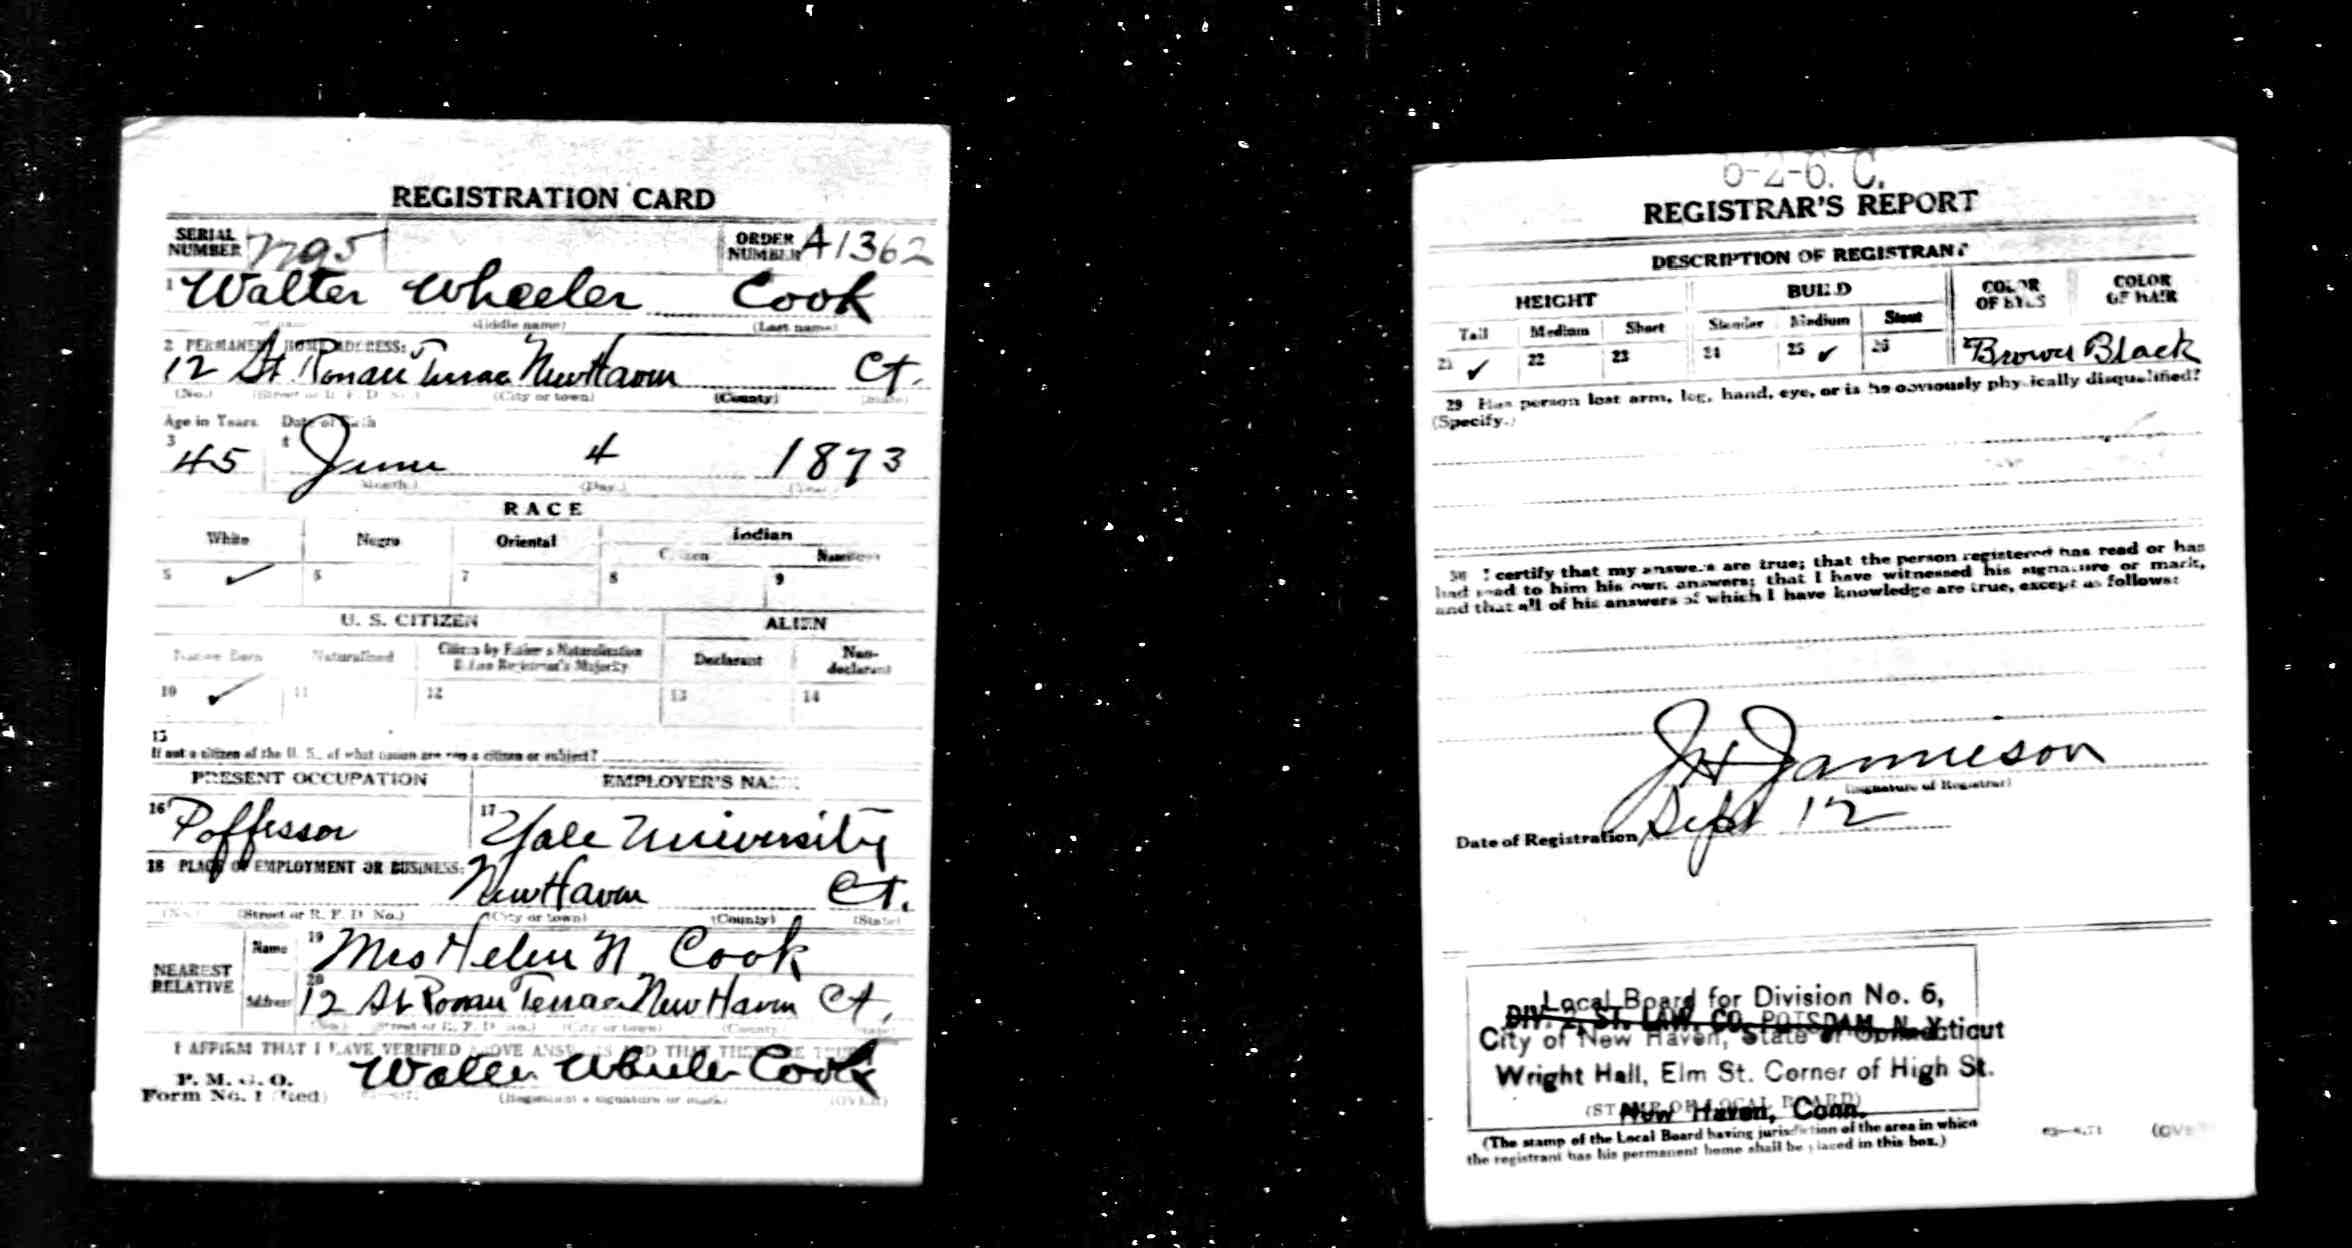 REGISTRATION CARD
SERIAL NUMBER
ORDER NUMBER A1362
1 Walter Wheeler Cook
(Middle name) (Last name)
2 PERMANENT HOME ADDRESS:
12 St. Ronan Terrace New Haven Ct.
(No.) (Street or R. F. D. No.) (City or town) (County) (State)
Age in Years Date of Birth
3 45 4 June 4 1873
(Month.) (Day.) (Year.)
RACE
White Negro Oriental Indian
Citizen Noncitizen
5 ✓ 6 7 8 9
U. S. CITIZEN ALIEN
Native Born Naturalized Citizen by Father's Naturalization Before Registrant's Majority Declarant Non-declarant
10 ✓ 11 12 13 14
15
If not a citizen of the U. S., of what nation are you a citizen or subject?
PRESENT OCCUPATION EMPLOYER'S NAME
16 Poffessor 17 Yale University
18 PLACE OF EMPLOYMENT OR BUSINESS:
New Haven Ct.
(No.) (Street or R. F. D. No.) (City or town) (County) (State)
NEAREST RELATIVE
Name 19 Mrs Helen N Cook
Address 20 12 St Ronan Terrace New Haven Ct.
(No.) (Street or R. F. D. No.) (City or town) (County) (State)
I AFFIRM THAT I HAVE VERIFIED ABOVE ANSWERS AND THAT THEY ARE TRUE
P. M. G. O.
Form No. 1 (Red) Walter Wheeler Cook
(Registrant's signature or mark) (OVER)
6-2-6. C.
REGISTRAR'S REPORT
DESCRIPTION OF REGISTRANT
HEIGHT BUILD COLOR OF EYES COLOR OF HAIR
Tall Medium Short Slender Medium Stout
21 ✓ 22 23 24 25 ✓ 26 Brown Black
29 Has person lost arm, leg, hand, eye, or is he obviously physically disqualified?
(Specify.)
30 I certify that my answers are true; that the person registered has read or has
had read to him his own answers; that I have witnessed his signature or mark,
and that all of his answers of which I have knowledge are true, except as follows:
J H Jamieson
(Signature of Registrar)
Date of Registration Sept 12
Local Board for Division No. 6,
DIV. 2 ST. LAW. CO. POTSDAM, N. Y.
City of New Haven, State of Connecticut
Wright Hall, Elm St. Corner of High St.
(STAMP OF LOCAL BOARD)
New Haven, Conn.
(The stamp of the Local Board having jurisdiction of the area in which
the registrant has his permanent home shall be placed in this box.)
(OVER)